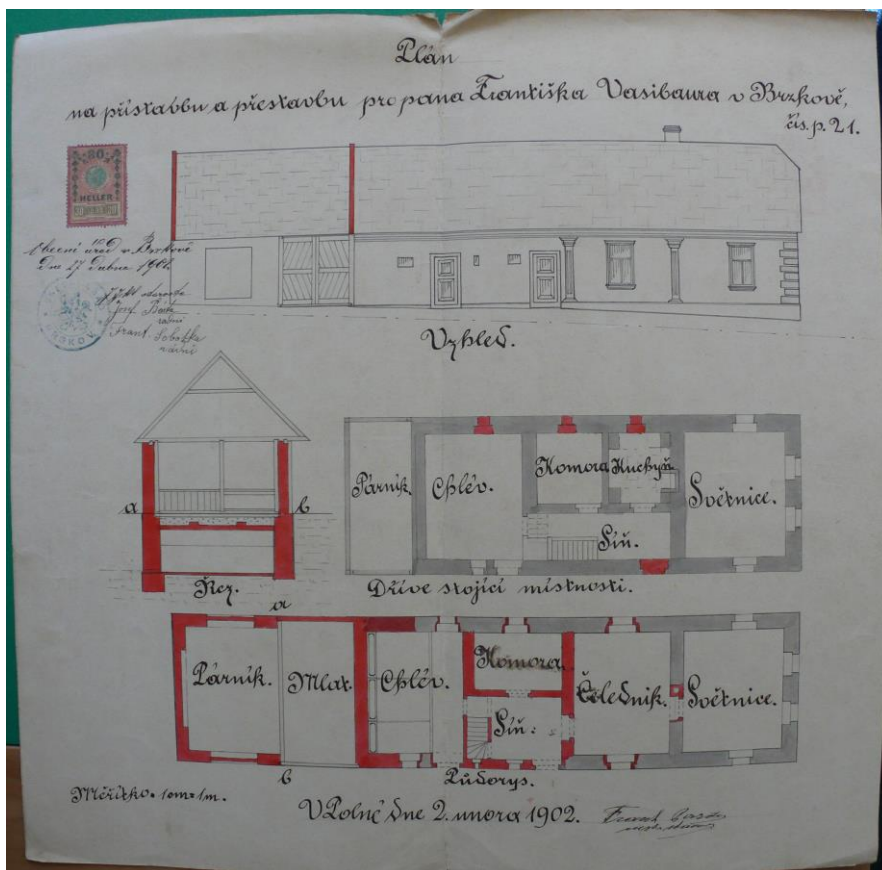 Plán
na přístavbu a přestavbu pro pana Františka Vasibaura v Brzkově,
čís. p. 21.
80
HELLER
Obecní úřad v Brzkově
dne 17 dubna 190
starosta
Josef
radní
Frant. Sobotka
radní
Vzhled.
a
b
Řez.
Párník.
Chlév.
Komora
Kuchyň
Světnice.
Síň.
Dříve stojící místnosti.
a
Párník.
Mlat.
Chlév.
Komora.
Síň.
Čeledník.
Světnice.
b
Půdorys.
Měřítko 1cm=1m.
V Polné dne 2. unora 1902.